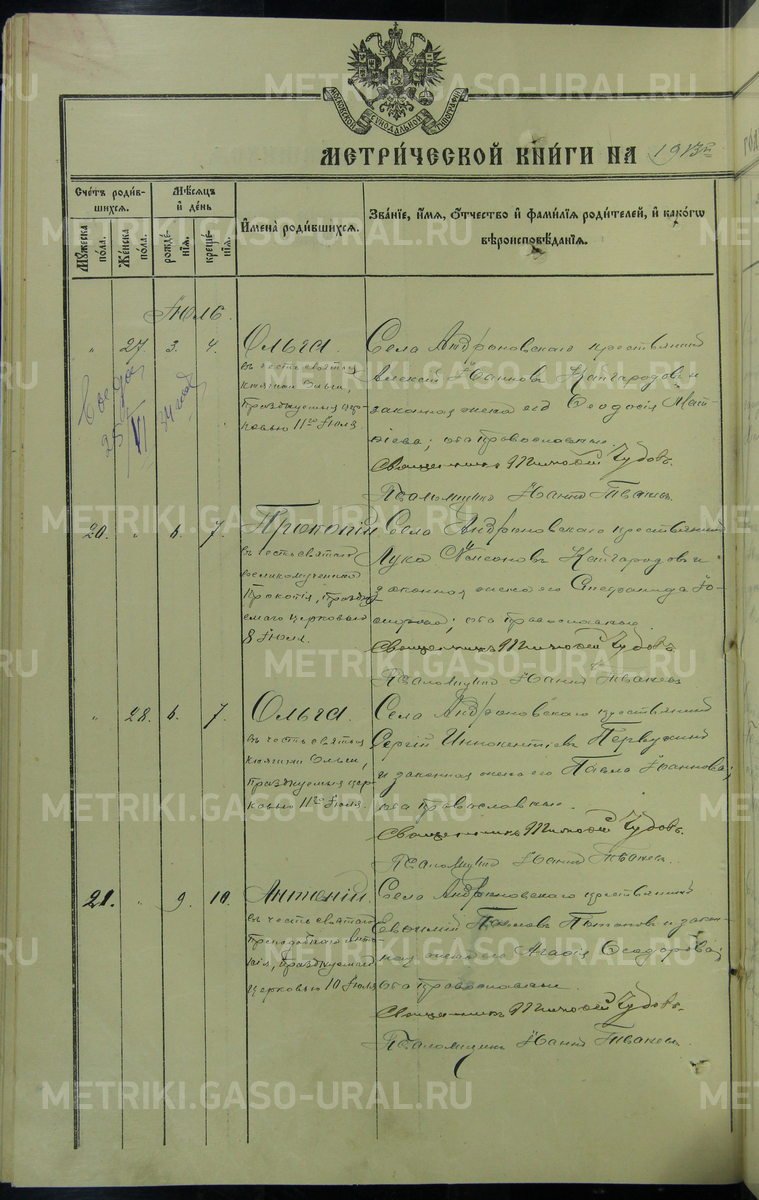 МОСКОВСКОЙ СУНОДАЛЬНОЙ ТИПОГРАФІИ
МЕТРИ́ЧЕСКОЙ КНИ́ГИ НА 1913й
Сче́тъ роди́вшихся.
Мѣ́сяцъ и́ де́нь
И҆мена̀ роди́вшихся.
Зва́нїе, и҆́мѧ, ѻ҆́тчество и҆ фами́лїѧ роди́телей, и҆ како́гѡ вѣроисповѣ́данїѧ.
Мꙋ́жеска по́ла.
Же́нска по́ла.
рожде́нїѧ.
креще́нїѧ.
Іюль.
" 27. 3. 4.
Ольга.
въ честь святыя
княгини Ольги,
празднуемыя цер-
ковью 11го Іюля
Села Андроновскаго крестьянинъ
Алексій Іоанновъ Кайгородовъ и
законная жена его Ѳеодосія Мат-
ѳіева; оба православные.
Священникъ Тимоѳей Чудовъ.
Псаломщикъ Іоаннъ
20. " 6. 7.
Прокопій
въ честь святаго
великомученика
Прокопія, праздну-
емаго церковью
8 Іюля.
Села Андроновскаго крестьянинъ
Лука Кайгородовъ и
законная жена его Стефанида Іо-
оба православные.
Священникъ Тимоѳей Чудовъ
Псаломщикъ Іоаннъ
" 28. 6. 7.
Ольга.
въ честь святыя
княгини Ольги,
празднуемыя цер-
ковью 11го Іюля.
Села Андроновскаго крестьянинъ
Сергій Иннокентіевъ Первухинъ
и законная жена его Павла Іоаннова;
оба православные.
Священникъ Тимоѳей Чудовъ.
Псаломщикъ Іоаннъ
21. " 9. 10.
Антоній.
въ честь святаго
Преподобнаго Анто-
нія, празднуемаго
церковью 10 Іюля
Села Андроновскаго крестьянинъ
Евѳимій Павловъ Потаповъ и закон-
ная жена его Агаѳія Ѳеодорова;
оба православные.
Священникъ Тимоѳей Чудовъ.
Псаломщикъ Іоаннъ
25 VI
METRIKI.GASO-URAL.RU